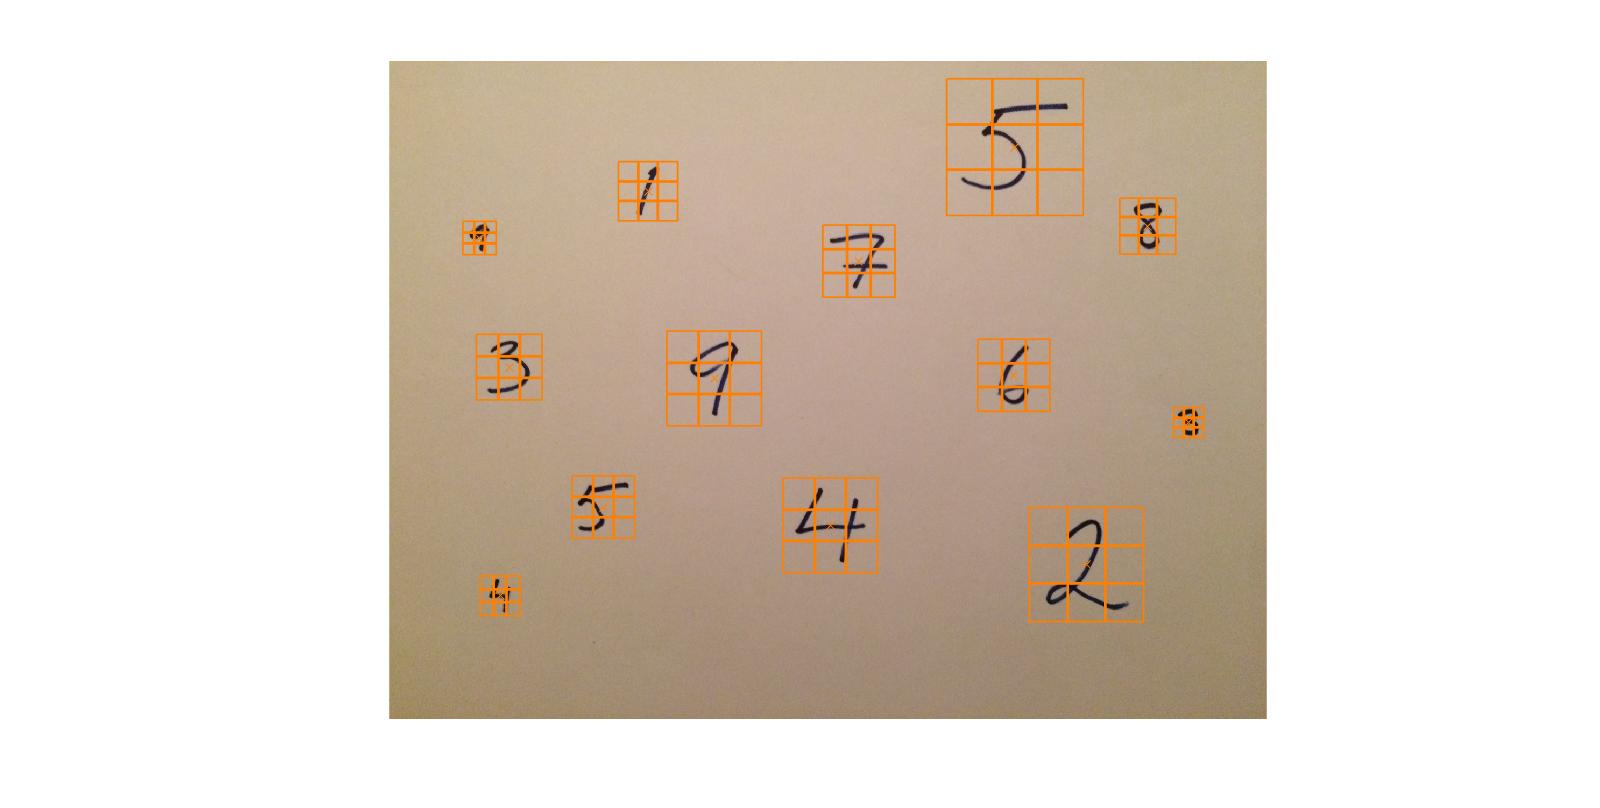 5
1
8
9
7
3
9
6
8
5
4
2
4